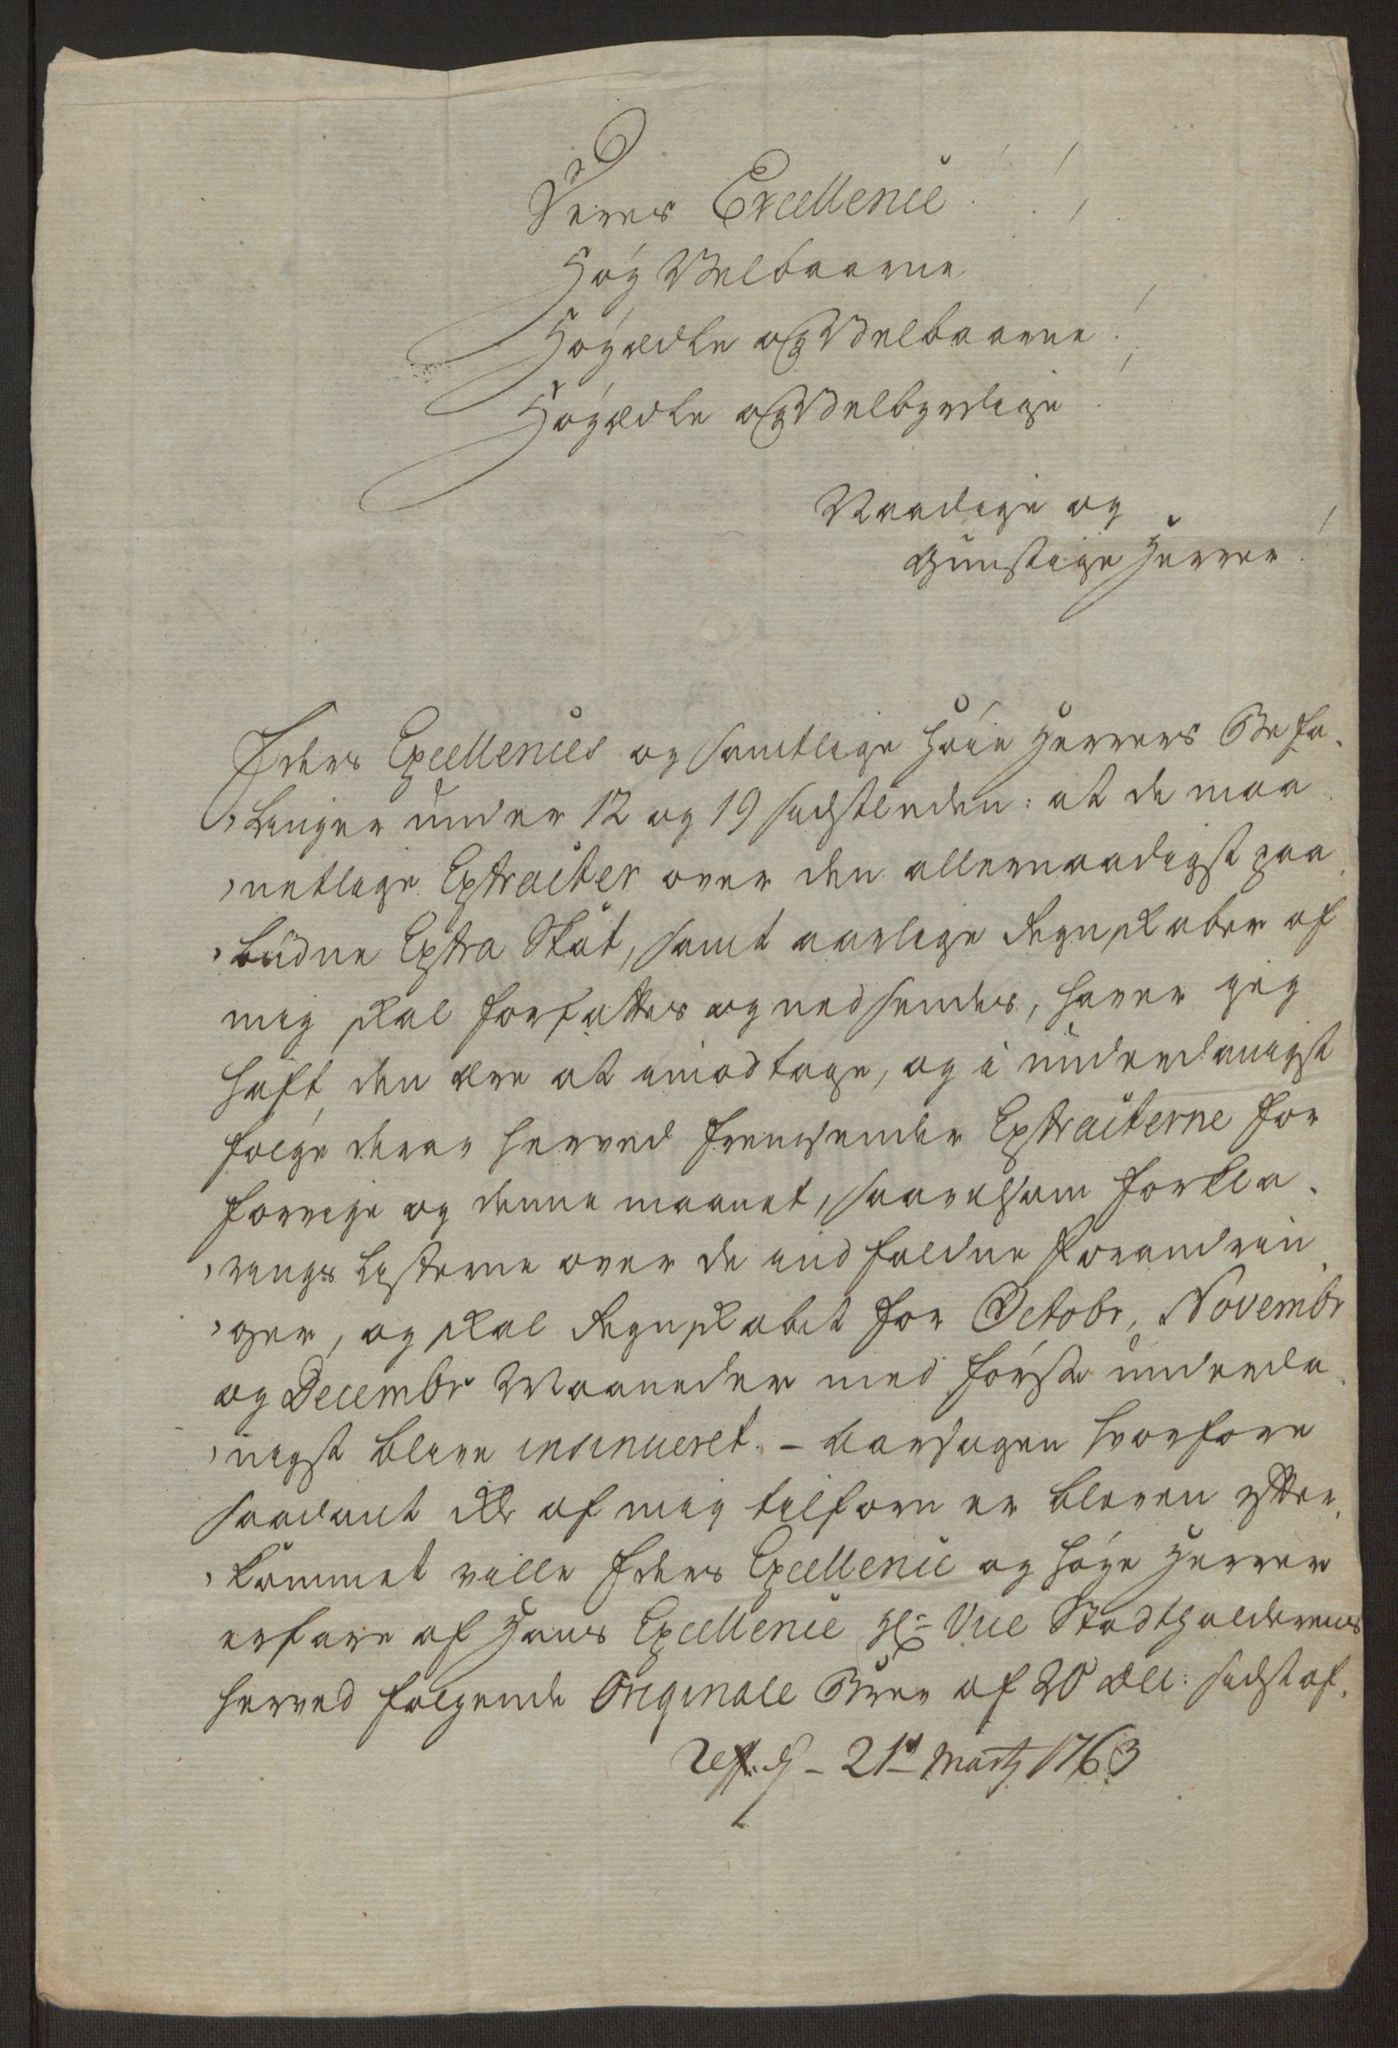 Deres Excellence!
Høy Velbaarne
Høyædle og Velbaarne!
Høyædle og Velbyrdige!
Naadige og
gunstige Herrer!
Eders Excellences og samtlige høie Herrers Befa-
-linger under 12 og 19 sidstleden: at de maa-
-netlige Extracter over den allernaadigst paa-
-budne Extra Skat, samt aarlige Regnskaber af
mig skal forfattes og nedsendes, haver jeg
haft den ære at imodtage, og i underdanigst
følge deraf herved fremsender Extracterne for
forrige og denne maanet, saavelsom forkla-
-rings Listerne over de indfaldne forandrin-
-ger, og skal Regnskabet for Octobr, Novembr
og Decembr Maaneder med første underda-
-nigst blive insinueret. - Aarsagen hvorfore
saadant ikke af mig tilforn er bleven efter-
-kommet ville Eders Excellence og høye Herrer
erfare af Hans Excellence Hr: Vice Stadtholderens
herved følgende Originale Brev af 20 Dec: sidst af.
21d Martz 1763